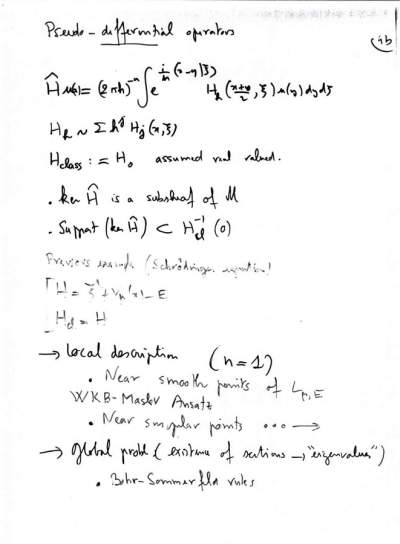 Pseudo-differential operators
Ĥu(x) = (2πh)⁻ⁿ ∫ e^{i/h (x-y|ξ)} H_h(x+y/2, ξ) u(y) dy dξ
H_h ~ Σ h^j H_j(x, ξ)
H_class := H_0 assumed real valued.
• ker Ĥ is a subsheaf of M
• Support (ker Ĥ) ⊂ H_cl^{-1}(0)
Previous example (Schrödinger equation)
H = ξ² + V(x) - E
H_cl = H
→ local description (n=1)
• Near smooth points of
WKB-Maslov Ansatz
• Near singular points ... →
→ global prob (existence of sections → "eigenvalues")
• Bohr-Sommerfeld rules